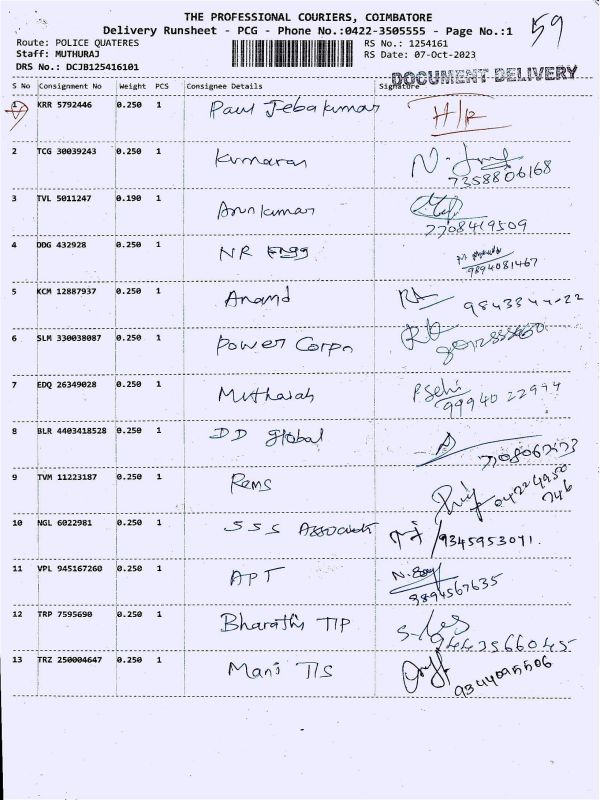 THE PROFESSIONAL COURIERS, COIMBATORE
Delivery Runsheet - PCG - Phone No.:0422-3505555 - Page No.:1
59
Route: POLICE QUATERES
RS No.: 1254161
Staff: MUTHURAJ
RS Date: 07-Oct-2023
DRS No.: DCJB125416101
DOCUMENT DELIVERY
S No Consignment No Weight PCS Consignee Details Signature
1 KRR 5792446 0.250 1 Paul Jebakumar
2 TCG 30039243 0.250 1 Kumaran
7358806168
3 TVL 5011247 0.190 1 Arunkumar
7708419509
4 DDG 432928 0.250 1 NR Engg
9894081467
5 KCM 12887937 0.250 1 Anand 9843344-22
6 SLM 330038087 0.250 1 Power Corpn
7 EDQ 26349028 0.250 1 Muthaiah
9994022994
8 BLR 4403418528 0.250 1 DD global
9 TVM 11223187 0.250 1 Rems
04224950
746
10 NGL 6022981 0.250 1 SSS Associate 9345953071.
11 VPL 945167260 0.250 1 APT
9894567635
12 TRP 7595690 0.250 1 Bharathi TIP
9443566045
13 TRZ 250004647 0.250 1 Mani TIS
9344095506